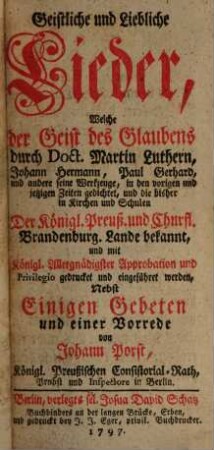 Geistliche und Liebliche
Lieder,
Welche
der Geist des Glaubens
durch Doct. Martin Luthern,
Johann Hermann, Paul Gerhard,
und andere seine Werkzeuge, in den vorigen und
jetzigen Zeiten gedichtet, und die bisher
in Kirchen und Schulen
Der Königl. Preuß. und Churfl.
Brandenburg. Lande bekannt,
und mit
Königl. Allergnädigster Approbation und
Privilegio gedrucket und eingeführet werden,
Nebst
Einigen Gebeten
und einer Vorrede
von
Johann Porst,
Königl. Preußischen Consistorial-Rath,
Probst und Inspectore in Berlin.
Berlin, verlegts sel. Josua David Schatz
Buchbinders an der langen Brücke, Erben,
und gedruckt bey J. J. Eger, privil. Buchdrucker.
1797.